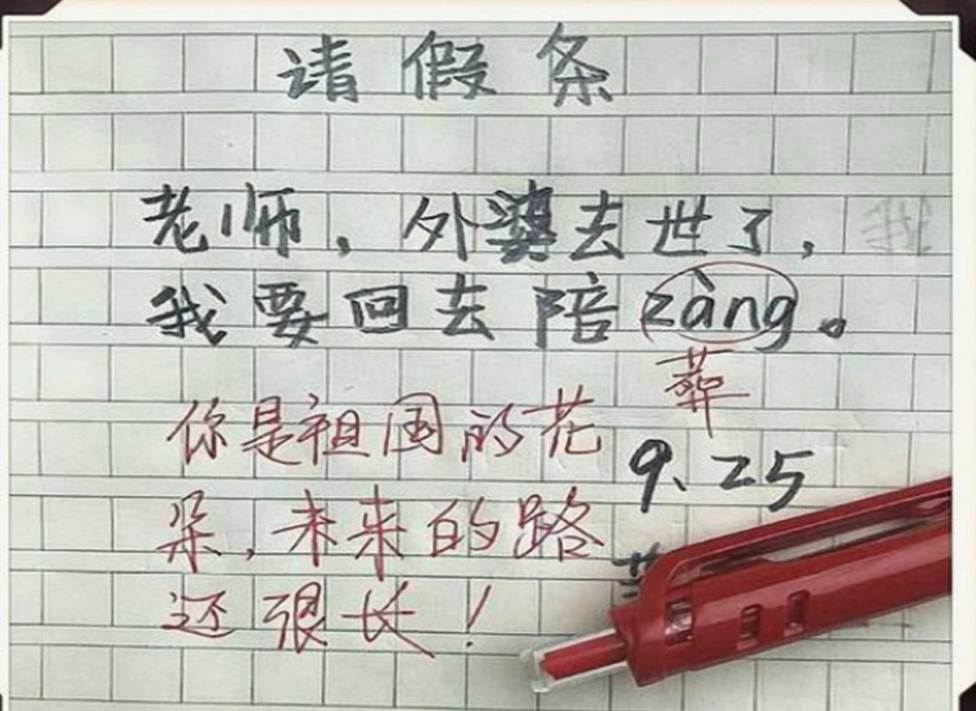 请假条
老师，外婆去世了，
我要回去陪zàng。
葬
你是祖国的花
9、25
朵，未来的路
还很长！